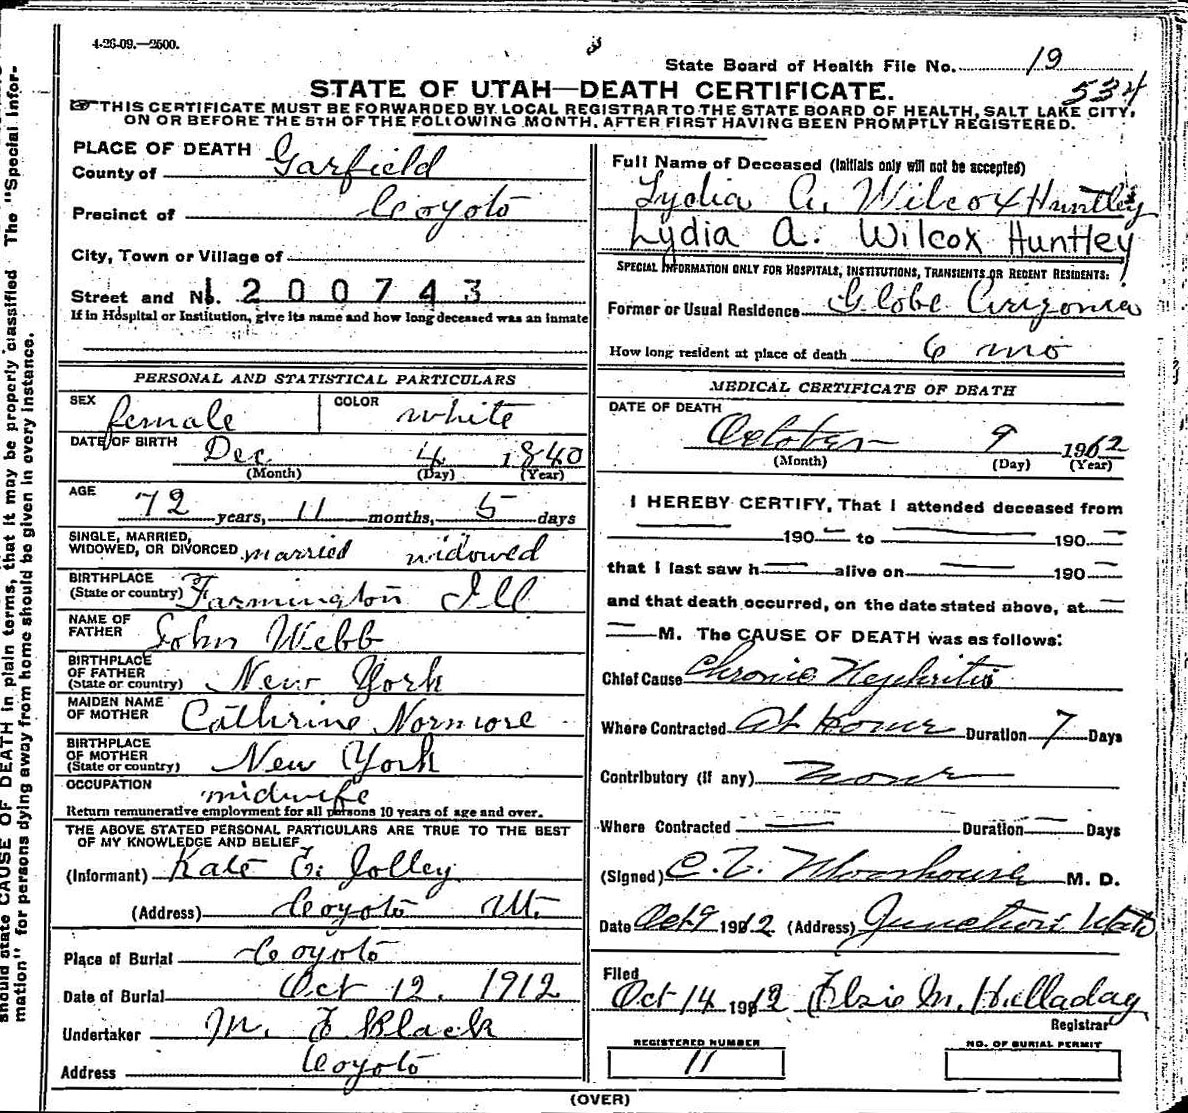 4-26-09.—2500.
State Board of Health File No. 19
534
STATE OF UTAH—DEATH CERTIFICATE.
☞THIS CERTIFICATE MUST BE FORWARDED BY LOCAL REGISTRAR TO THE STATE BOARD OF HEALTH, SALT LAKE CITY,
ON OR BEFORE THE 5TH OF THE FOLLOWING MONTH, AFTER FIRST HAVING BEEN PROMPTLY REGISTERED.
PLACE OF DEATH
County of Garfield
Precinct of Coyoto
City, Town or Village of
Street and No. 1200743
If in Hospital or Institution, give its name and how long deceased was an inmate
PERSONAL AND STATISTICAL PARTICULARS
SEX female COLOR white
DATE OF BIRTH Dec 4 1840
(Month) (Day) (Year)
AGE
72 years, 11 months, 5 days
SINGLE, MARRIED,
WIDOWED, OR DIVORCED married widowed
BIRTHPLACE
(State or country) Farmington Ill
NAME OF
FATHER John Webb
BIRTHPLACE
OF FATHER
(State or country) New York
MAIDEN NAME
OF MOTHER Cathrine Normore
BIRTHPLACE
OF MOTHER
(State or country) New York
OCCUPATION midwife
Return remunerative employment for all persons 10 years of age and over.
THE ABOVE STATED PERSONAL PARTICULARS ARE TRUE TO THE BEST
OF MY KNOWLEDGE AND BELIEF
(Informant) Kate E. Jolley
(Address) Coyoto Ut.
Place of Burial Coyoto
Date of Burial Oct 12. 1912
Undertaker M. F Black
Address Coyoto
Full Name of Deceased (Initials only will not be accepted)
Lydia A. Wilcox Huntley
Lydia A. Wilcox Huntley
SPECIAL INFORMATION ONLY FOR HOSPITALS, INSTITUTIONS, TRANSIENTS OR RECENT RESIDENTS:
Former or Usual Residence Globe Arizonia
How long resident at place of death 6 mo
MEDICAL CERTIFICATE OF DEATH
DATE OF DEATH
October 9 1912
(Month) (Day) (Year)
I HEREBY CERTIFY, That I attended deceased from
190 — to — 190 —
that I last saw h — alive on — 190 —
and that death occurred, on the date stated above, at —
— M. The CAUSE OF DEATH was as follows:
Chief Cause Chronic Nephritis
Where Contracted At Home Duration 7 Days
Contributory (if any) None
Where Contracted — Duration — Days
(Signed) M. D.
Date Oct 9 1912 (Address) Junction Utah
Filed
Oct 14 1912 Elsie M. Halladay
Registrar
REGISTERED NUMBER
11
NO. OF BURIAL PERMIT
(OVER)
should state CAUSE OF DEATH in plain terms, that it may be properly classified. The "Special Infor-
mation" for persons dying away from home should be given in every instance.